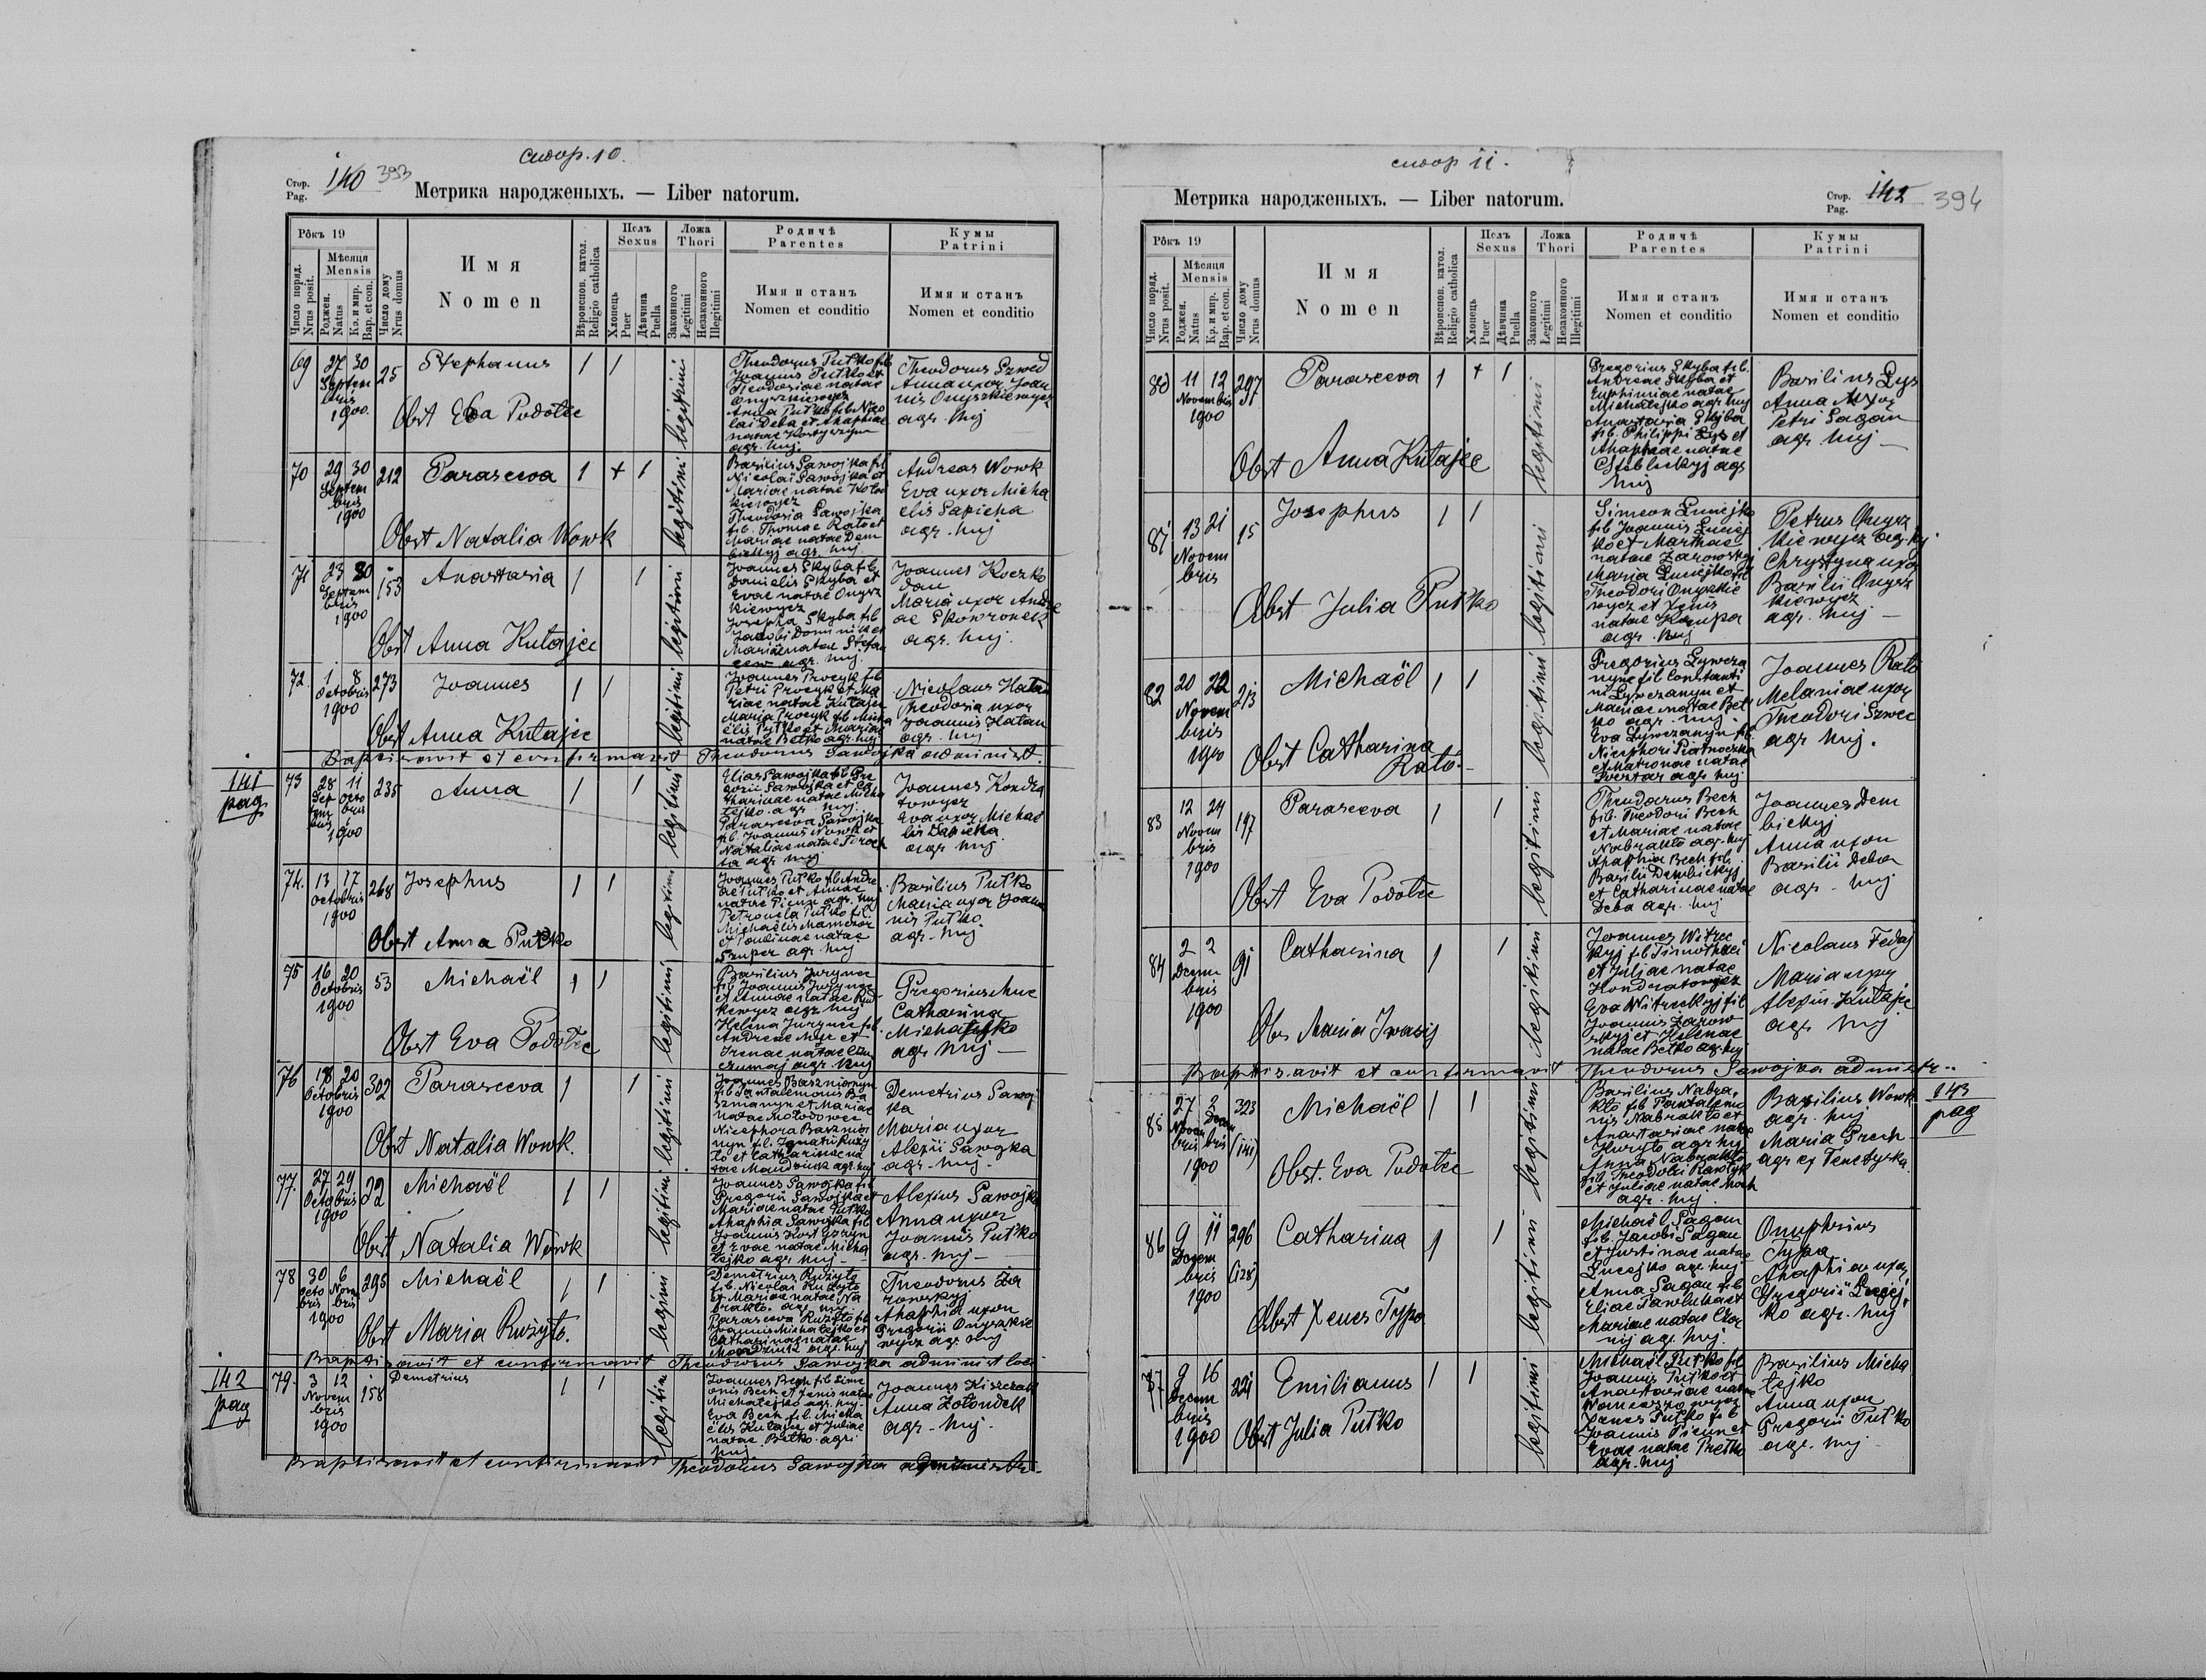 стор. 10.
Стор.
Pag.
140 393
Метрика народженыхъ. — Liber natorum.
Рôкъ 19
Число поряд.
Nrus posit.
Мѣсяця
Mensis
Роджен.
Natus
Кр. и мир.
Bap. et con.
Число дому
Nrus domus
Имя
Nomen
Вѣроиспов. катол.
Religio catholica
Полъ
Sexus
Хлопець
Puer
Дѣвчина
Puella
Ложа
Thori
Законного
Legitimi
Незаконного
Illegitimi
Родичѣ
Parentes
Имя и станъ
Nomen et conditio
Кумы
Patrini
Имя и станъ
Nomen et conditio
69 27 30 Septembris 1900 25 Stephanus 1 1 legitimi
Theodorus Putko fil.
Joannis Putko et
Theodosiae natae
Onyszkiewycz
Anna Putko fil. Nico
lai Deba et Ahaphiae
natae
agr. huj.
Theodorus Szwed
Anna uxor Joan
nis Onyszkiewycz
agr. huj
Obst Eva Podolec
70 29 30 Septembris 1900 212 Parasceva 1 + 1 legitimi
Basilius Sawojka fil
Nicolai Sawojka et
Mariae natae
Theodosia Sawojka
fil. Thomae Rato et
Mariae natae Dem
bickyj agr. huj.
Andreas Wowk
Eva uxor Micha
elis Sapieha
agr. huj.
Obst Natalia Wowk
71 23 30 Septembris 1900 153 Anastasia 1 1 legitimi
Joannes Skyba fil.
Danielis Skyba et
Evae natae Onysz
kiewycz
Josepha Skyba fil
Jacobi Dominik et
Mariae natae Stefan
agr. huj.
Joannes Koczko
dan
Maria uxor Andre
ae Skowronek
agr. huj.
Obst Anna Kulajec
72. 1 8 Octobris 1900 273 Joannes 1 1 legitimi
Joannes Procyk fil
Petri Procyk et Ma
riae natae Kulajec
Maria Procyk fil. Micha
elis Putko et Mariae
natae Betko agr. huj
Nicolaus Hatan
Theodosia uxor
Joannis Hatan
agr. huj
Obst Anna Kulajec
Baptisavit et confirmavit Theodorus Sawojka administ.
141
pag.
73 28 Septembris 11 Octobris 1900 235 Anna 1 1 legitimi
Elias Sawojka fil Gre
gorii Sawojka et Ca
tharinae natae Micha
lejko agr. huj.
Parasceva Sawojka
fil. Joannis Wowk et
Nataliae natae
agr. huj
Joannes Kondra
towycz
Eva uxor Michae
lis Sapieha
agr. huj
74. 13 17 Octobris 1900 268 Josephus 1 1 legitimi
Joannes Putko fil Andre
ae Putko et Annae
natae agr. huj
Petronela Putko fil.
Michaelis
et Paulinae natae
Szuper agr. huj
Basilius Putko
Maria uxor Joan
nis Putko
agr. huj
Obst Anna Putko
75 16 20 Octobris 1900 53 Michaël 1 1 legitimi
Basilius Jurynec
fil Joannis Jurynec
et Annae natae
agr. huj
Helena Jurynec fil.
Andreae Muc et
Irenae natae
agr. huj
Gregorius Muc
Catharina
Michalejko
agr. huj —
Obst Eva Podolec
76 18 20 Octobris 1900 302 Parasceva 1 1 legitimi
Joannes Baszmanyn
fil Pantalemonis Ba
szmanyn et Mariae
natae
Nicephora Baszma
nyn fil. Ignatii Ruzy
lo et Catharinae na
tae agr. huj
Demetrius Sawoj
ka
Maria uxor
Alexii Sawojka
agr. huj.
Obst Natalia Wowk.
77. 27 29 Octobris 1900 22 Michaël 1 1 legitimi
Joannes Sawojka fil
Gregorii Sawojka et
Mariae natae Putko
Ahaphia Sawojka fil
Joannis
et Evae natae Micha
lejko agr. huj —
Alexius Sawojka
Anna uxor
Joannis Putko
agr. huj —
Obst Natalia Wowk
78 30 Octobris 6 Novembris 1900 295 Michaël 1 1 legitimi
Demetrius Ruzylo
fil. Nicolai Ruzylo
et Mariae natae Na
brakto. agr. huj
Parasceva Ruzylo fil
Joannis Michalejko et
Catharinae natae
agr. huj
Theodorus Za
rowskyj
Ahaphia uxor
Gregorii Onyszkie
wycz agr. huj
Obst Maria Ruzylo.
Baptisavit et confirmavit Theodorus Sawojka administ loci
142
pag
79. 3 12 Novembris 1900 158 Demetrius 1 1 legitimi
Joannes Bech fil Sime
onis Bech et Xenis natae
Michalejko agr. huj.
Eva Bech fil. Micha
elis Kulajec et Juliae
natae Betko. agr.
huj.
Joannes Kiszczak
Anna Zolondek
agr. huj.
Baptisavit et confirmavit Theodorus Sawojka administr.
стор 11.
Метрика народженыхъ. — Liber natorum.
Стор.
Pag.
142 394
Рôкъ 19
Число поряд.
Nrus posit.
Мѣсяця
Mensis
Роджен.
Natus
Кр. и мир.
Bap. et con.
Число дому
Nrus domus
Имя
Nomen
Вѣроиспов. катол.
Religio catholica
Полъ
Sexus
Хлопець
Puer
Дѣвчина
Puella
Ложа
Thori
Законного
Legitimi
Незаконного
Illegitimi
Родичѣ
Parentes
Имя и станъ
Nomen et conditio
Кумы
Patrini
Имя и станъ
Nomen et conditio
80 11 12 Novembris 1900 297 Parasceva 1 + 1 legitimi
Gregorius Skyba fil.
Andreae Skyba et
Euphimiae natae
Michalejko agr. huj
Anastasia Skyba
fil. Philippi Lys et
Ahaphiae natae
Stebleckyj agr
huj
Basilius Lys
Anna uxor
Petri Sagan
agr. huj —
Obst Anna Kulajec
81 13 21 Novembris 15 Josephus 1 1 legitimi
Simeon Lucejko
fil Joannis Lucej
ko et Marthae
natae Zarowskyj
Maria Lucejko fil
Theodori Onyszkie
wycz et Xenis
natae Krupa
agr. huj
Petrus Onysz
kiewycz agr. huj.
Chrystyna uxor
Basilii Onysz
kiewycz
agr. huj —
Obst Julia Putko
82 20 22 Novembris 1900 213 Michaël 1 1 legitimi
Gregorius Lywcza
nyn fil Constanti
ni Lywczanyn et
Mariae natae Bet
ko agr. huj.
Eva Lywczanyn fil.
Nicephori
et Matronae natae
agr. huj
Joannes Rato
Melaniae uxor
Theodori Szwec
agr huj.
Obst Catharina
Rato.
83 12 24 Novembris 1900 197 Parasceva 1 1 legitimi
Theodorus Bech
fil. Theodori Bech
et Mariae natae
Nabrakto agr. huj
Ahaphia Bech fil.
Basilii Dembickyj
et Catharinae natae
Deba agr. huj
Joannes Dem
bickyj
Anna uxor
Basilii Deba
agr. huj
Obst Eva Podolec
84 2 2 Decembris 1900 91 Catharina 1 1 legitimi
Joannes Witrec
kyj fil Timothaei
et Juliae natae
Kondratowycz
Eva Witreckyj fil
Joannis Zarow
skyj et Helenae
natae Betko agr. huj
Nicolaus Fedaj
Maria uxor
Alexii Kulajec
agr. huj
Obs Maria Iwasij
Baptisavit et confirmavit Theodorus Sawojka administr..
143
pag
85 27 Novembris 2 Decembris 1900 323 (141) Michaël 1 1 legitimi
Basilius Nabra
kto fil Pantalemo
nis Nabrakto et
Anastasiae natae
Kuryto agr huj
Anna Nabrakto
fil Theodori
et Juliae natae Hoch
agr. huj.
Basilius Wowk
agr. huj
Maria Grech
agr ex Tenetyska.
Obst. Eva Podolec
86 9 11 Decembris 1900 296 (128) Catharina 1 1 legitimi
Michaël Sagan
fil. Jacobi Sagan
et Justinae natae
Lucejko agr. huj
Anna Sagan fil
Eliae Pawluk et
Mariae natae Czor
nij agr. huj.
Onuphrius
Ahaphia uxor
Gregorii Lucej
ko agr. huj
Obst Xenes Typa
87 9 16 Decembris 1900 221 Emilianus 1 1 legitimi
Michaël Putko fil
Joannis Putko et
Anastasiae natae
Xenes Putko fil
Joannis et
Evae natae Pretko
agr. huj
Basilius Micha
lejko
Anna uxor
Gregorii Putko
agr. huj
Obst Julia Putko